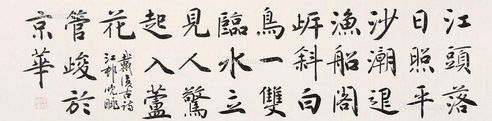 江頭落
日照平
沙潮退
漁船閣
岸斜白
鳥一雙
臨水立
見人驚
起入蘆
花
戴復古詩
江邨晚眺
管峻於
京華